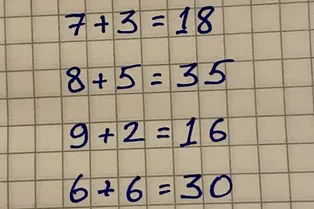 7+3=18
8+5=35
9+2=16
6+6=30